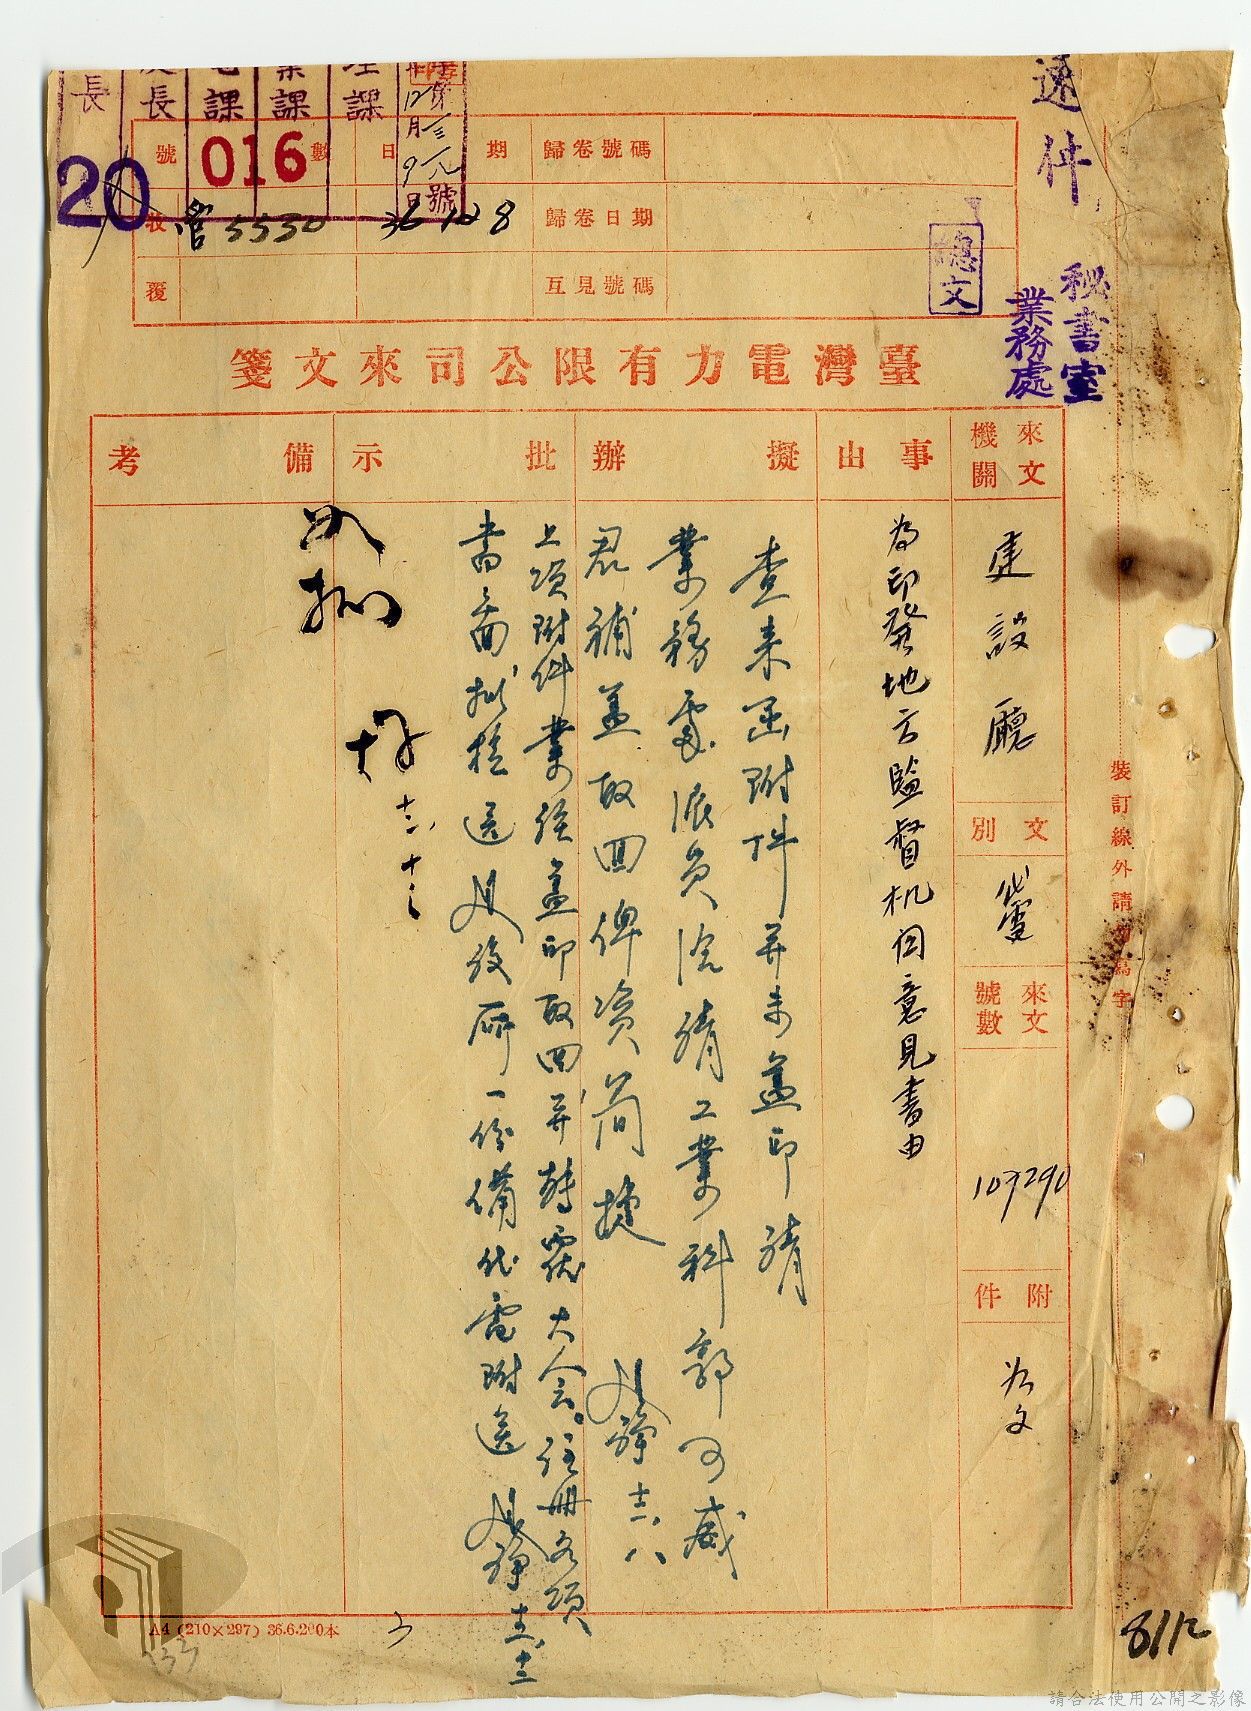 速件
秘書室
業務處
總文
長
長
課
課
課
第三一八號
12月9日
20
016
號數
日期
歸卷號碼
收
營5530
36 12 8
歸卷日期
覆
互見號碼
臺灣電力有限公司來文箋
來文機關
事由
擬辦
批示
備考
建設廳
文別
代電
來文號數
107290
附件
如文
為印發地方監督机関意見書由
查來函附件并未蓋印請
業務處派員洽請工業科郭可威
君補蓋取回俾資簡捷
十二、八
上項附件業經蓋印取回并轉電大会。註冊各項
書面擬檢送
後研一份備代電附送
十二、十二
十二、十二
裝訂線外請勿寫字
A4 (210×297) 36.6.200本
3
133
8112
請合法使用公開之影像